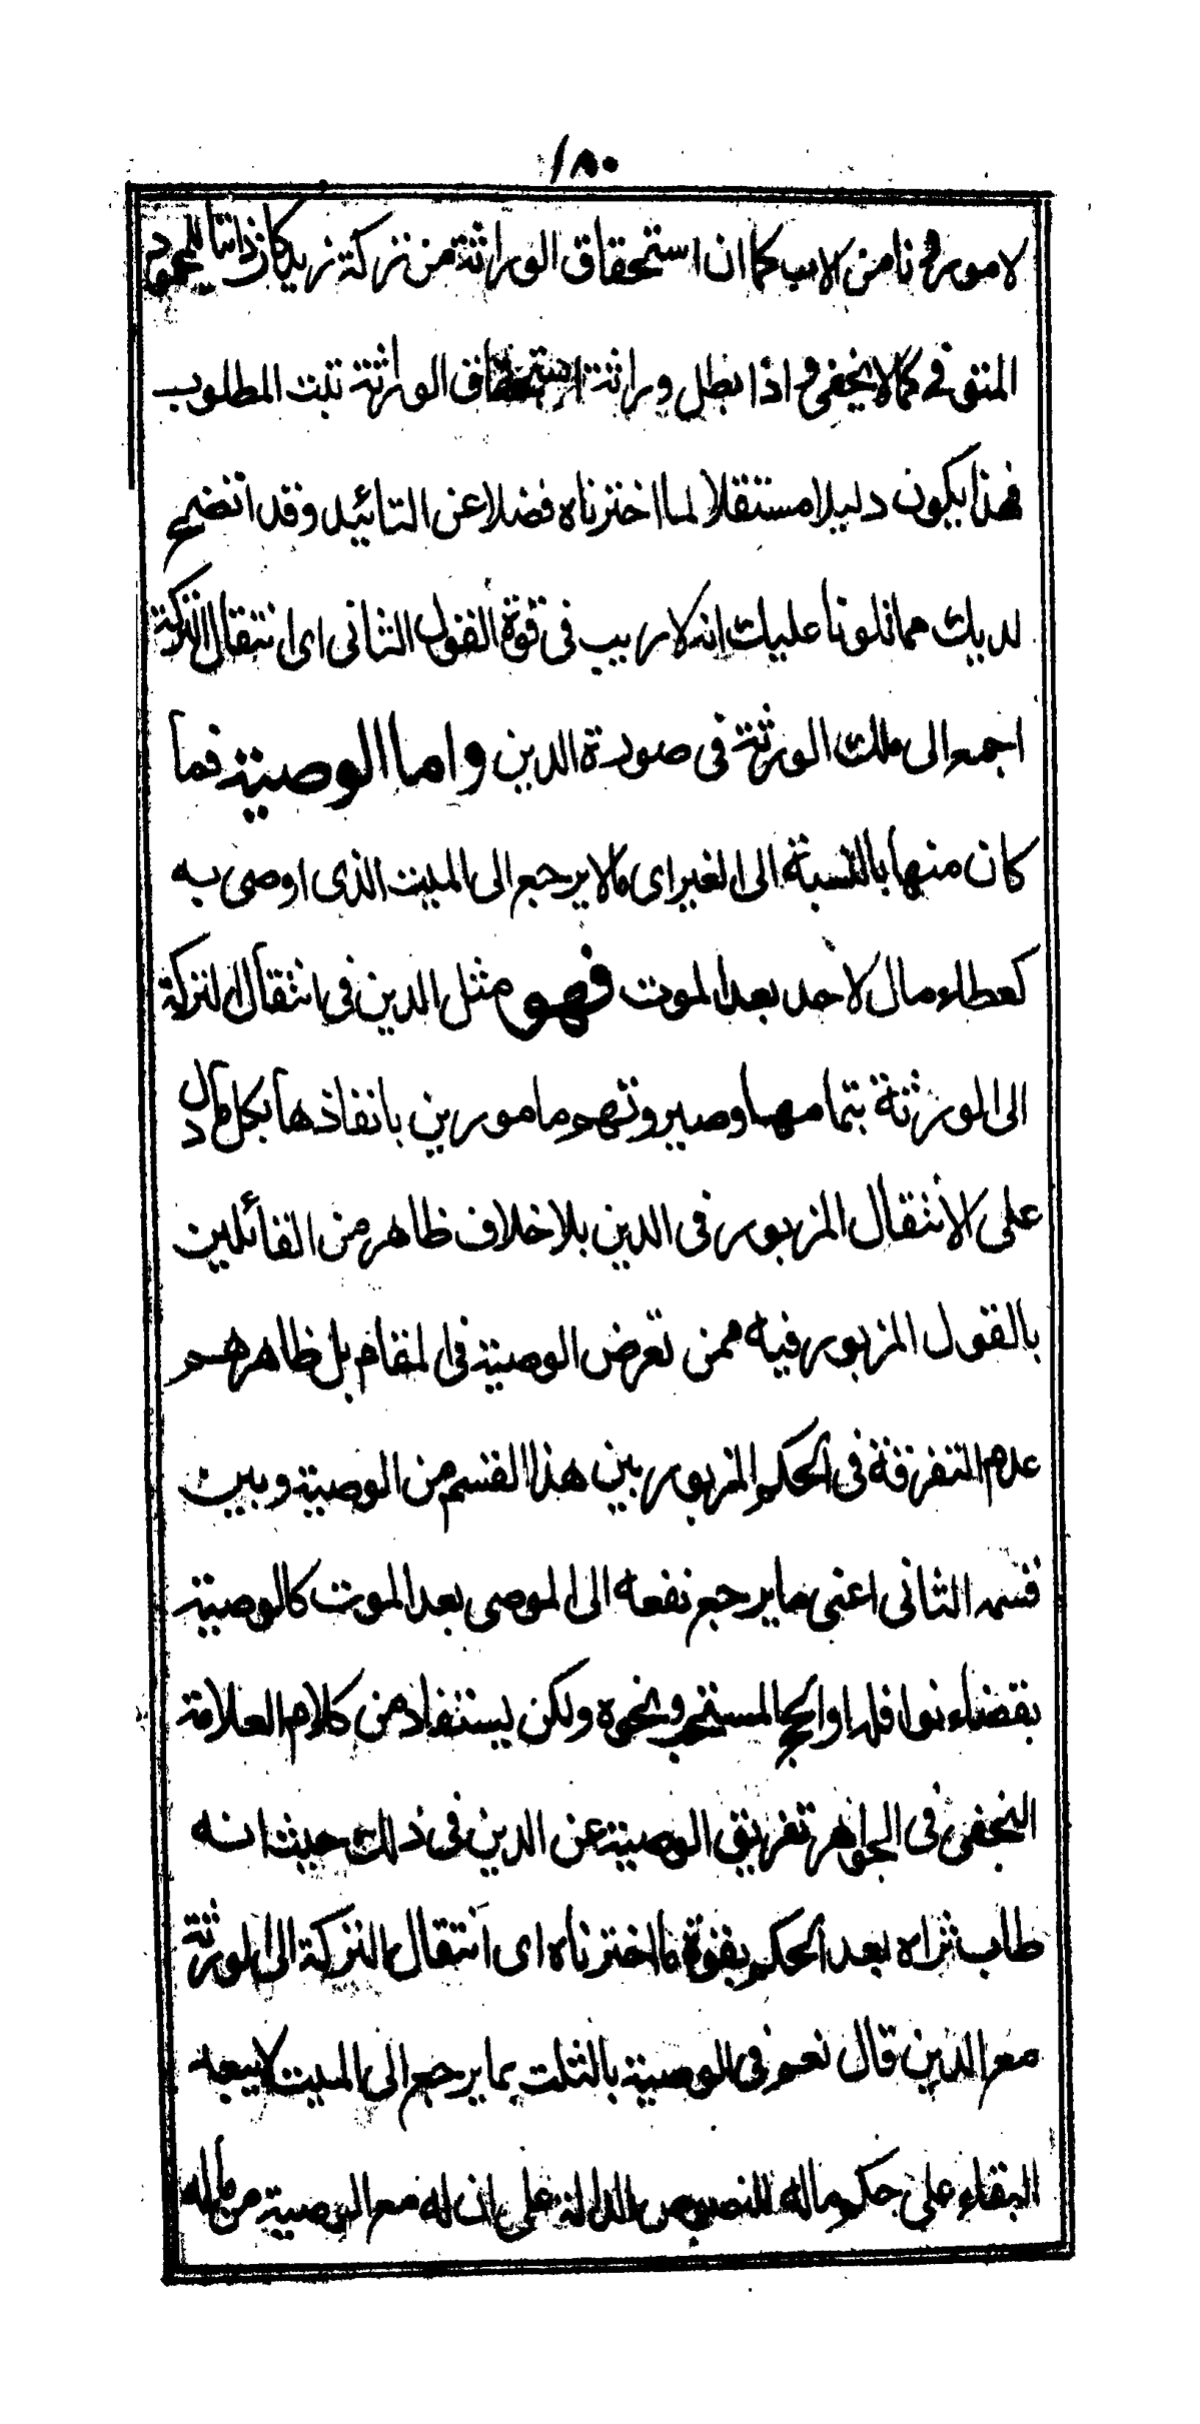 ١٨٠
لا موروثا من الاب كما ان استحقاق الوراثة من تركة زيد كان ذاتيا للعمود
المتوفى كما لا يخفى واذا بطل وراثة استحقاق الوراثة ثبت المطلوب
فهذا يكون دليلا مستقلا لما اخترناه فضلا عن التائيد وقد اتضح
لديك مما تلونا عليك انه لا ريب فى قوة القول الثانى اى انتقال التركة
اجمع الى ملك الورثة فى صورة الدين واما الوصية فما
كان منها بالنسبة الى الغير اى ما لا يرجع الى الميت الذى اوصى به
كعطاء مال لاحد بعد الموت فهو مثل الدين فى انتقال التركة
الى الورثة بتمامها وصيروتهم مامورين بانفاذها بكل ما دل
على الانتقال المزبور فى الدين بلا خلاف ظاهر من القائلين
بالقول المزبور فيه ممن تعرض الوصية فى المقام بل ظاهرهم
عدم التفرقة فى الحكم المزبور بين هذا القسم من الوصية وبين
قسمه الثانى اعنى ما يرجع نفعه الى الموصى بعد الموت كالوصية
بقضاء نوافله او الحج المستحب ونحوه ولكن يستفاد من كلام العلامة
النجفى فى الجواهر تفريق الوصية عن الدين فى ذلك حيث انه
طاب ثراه بعد الحكم بقوة ما اخترناه اى انتقال التركة الى الورثة
مع الدين قال نعم فى الوصية بالثلث بما يرجع الى الميت لا يبعد
البقاء على حكم ماله للنصوص الدالة على ان له مع الوصية من ماله